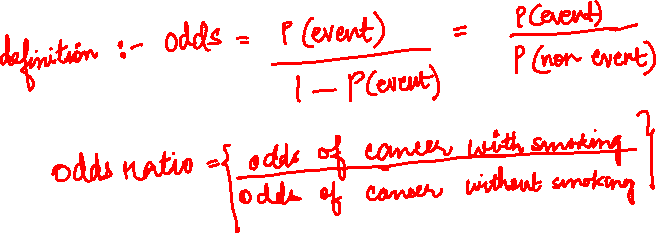 definition :- odds = P(event) / 1 - P(event) = P(event) / P(non event)
odds ratio = { odds of cancer with smoking / odds of cancer without smoking }